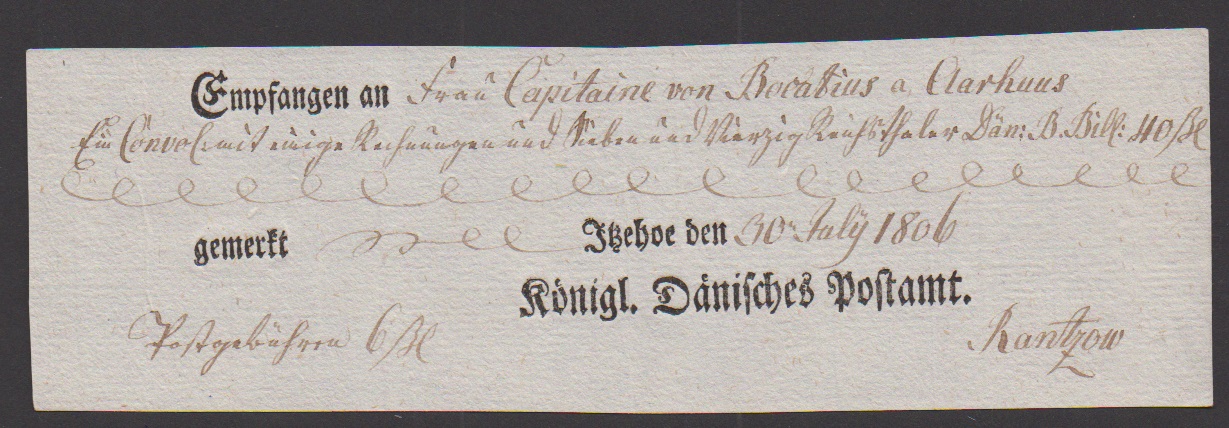 Empfangen an Frau Capitaine von Bocatius a Aarhuus
Ein Convol. mit einige Rechnungen und Sieben und Vierzig Reichsthaler Dän: B. Bill: 40 ßl
gemerkt Itzehoe den 30 July 1806
Königl. Dänisches Postamt.
Postgebühren 6 ßl Rantzow